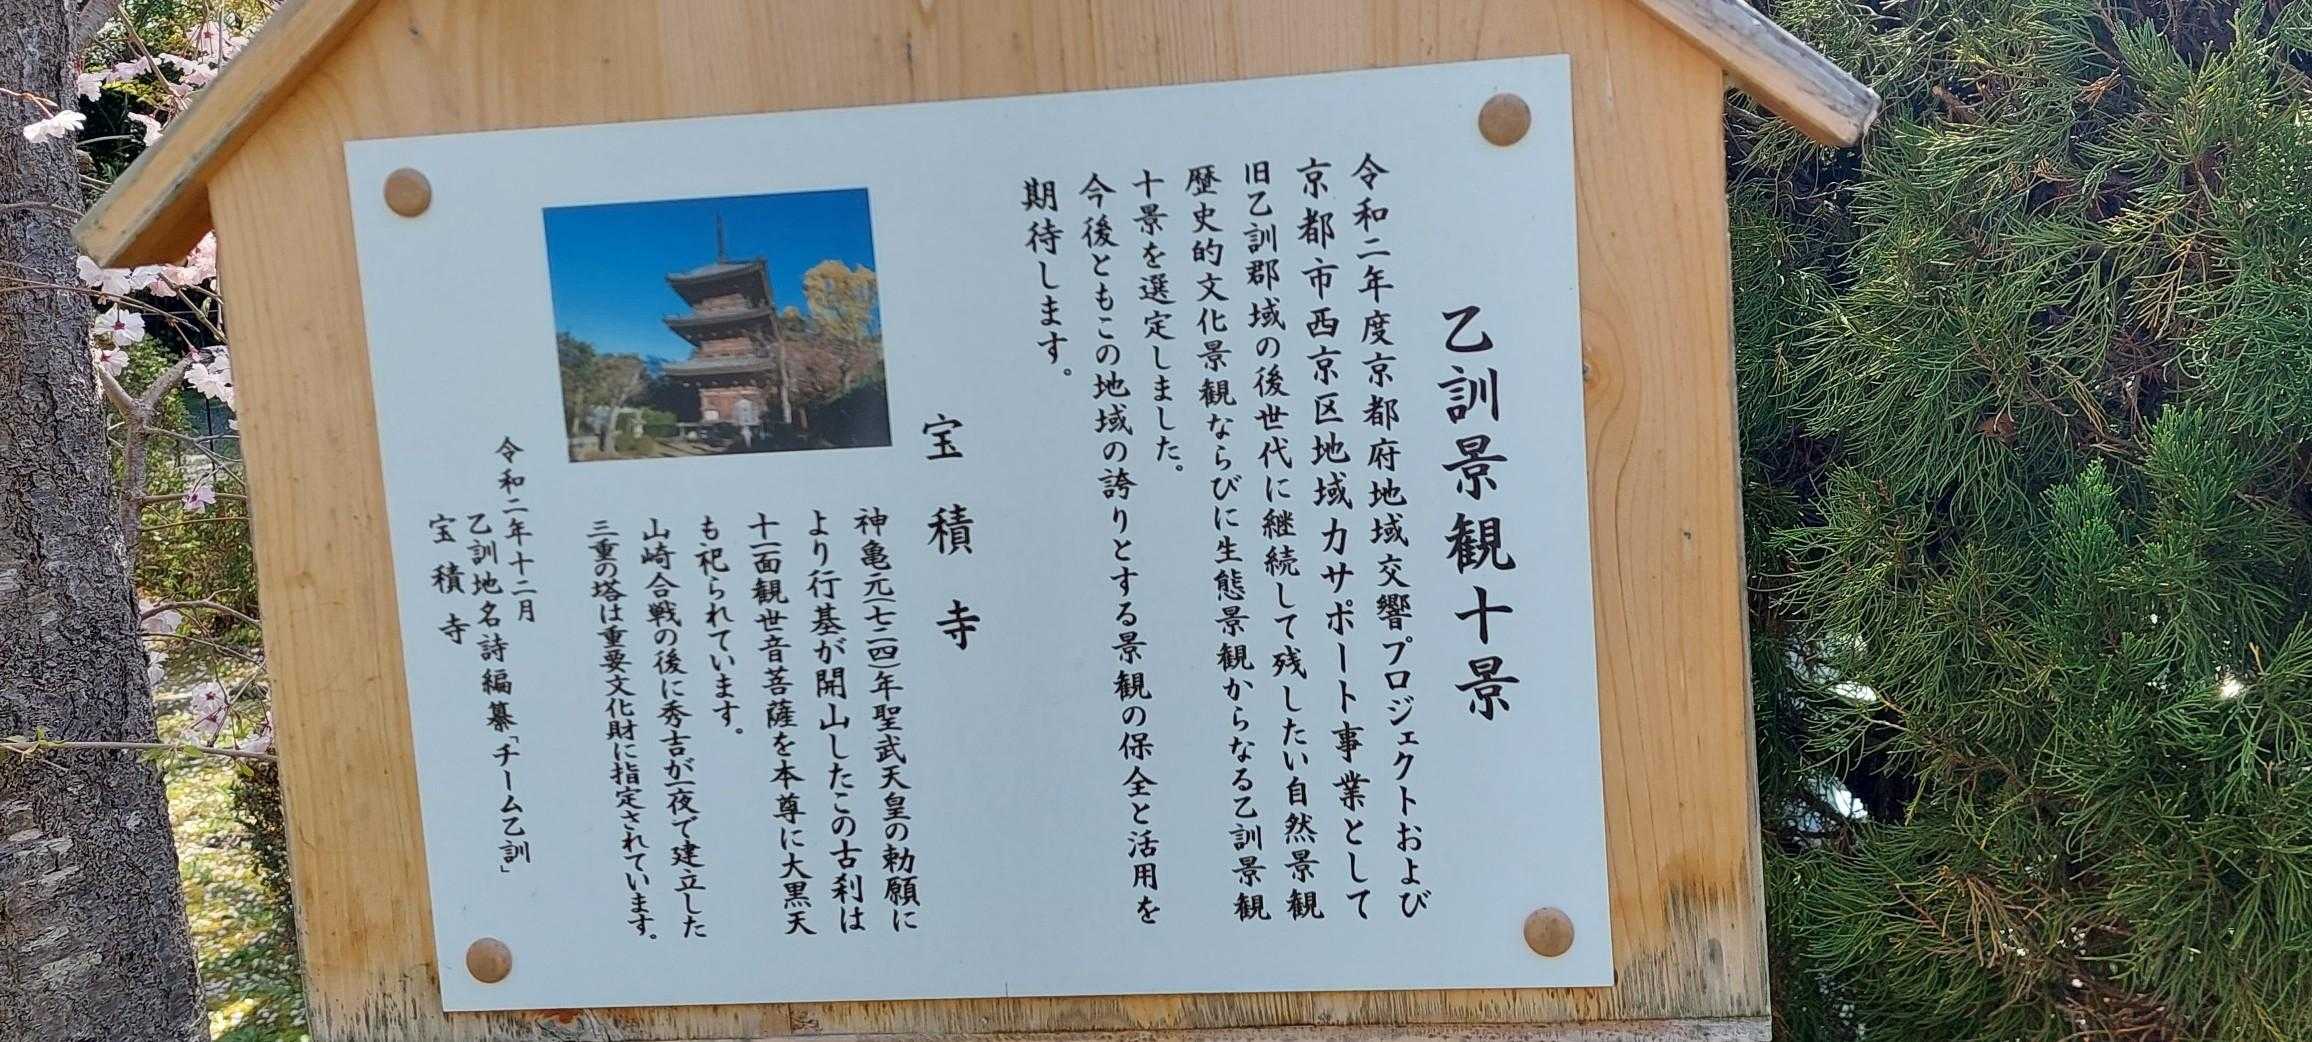 乙訓景観十景
令和二年度京都府地域交響プロジェクトおよび
京都市西京区地域力サポート事業として
旧乙訓郡域の後世代に継続して残したい自然景観
歴史的文化景観ならびに生態景観からなる乙訓景観
十景を選定しました。
今後ともこの地域の誇りとする景観の保全と活用を
期待します。
宝積寺
神亀元(七二四)年聖武天皇の勅願に
より行基が開山したこの古刹は
十一面観世音菩薩を本尊に大黒天
も祀られています。
山崎合戦の後に秀吉が一夜で建立した
三重の塔は重要文化財に指定されています。
令和二年十二月
乙訓地名詩編纂「チーム乙訓」
宝積寺